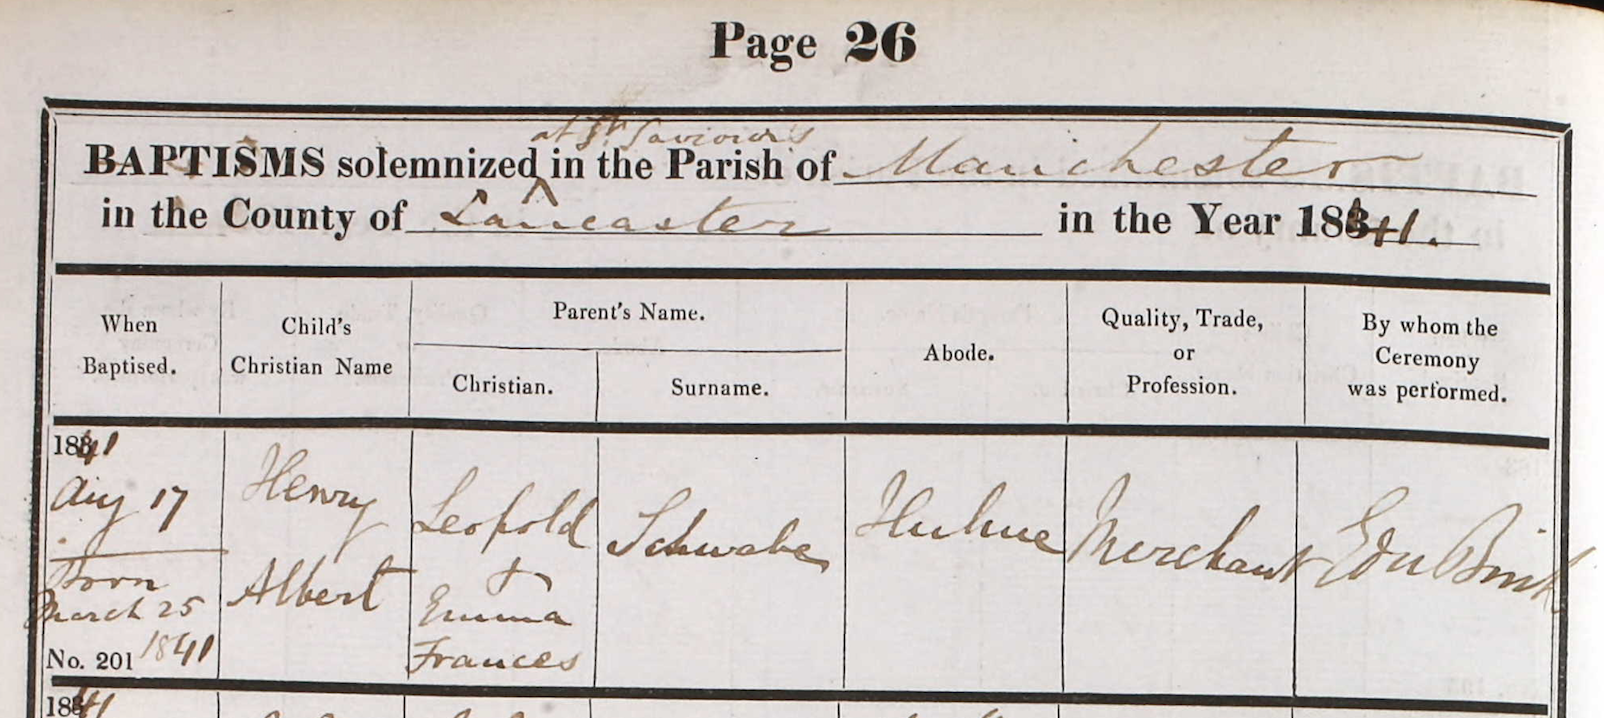 Page 26
at St Saviour's
BAPTISMS solemnized in the Parish of Manchester
in the County of Lancaster in the Year 1841.
When
Baptised.
Child's
Christian Name
Parent's Name.
Christian.
Surname.
Abode.
Quality, Trade,
or
Profession.
By whom the
Ceremony
was performed.
1841
Aug 17
Born
March 25
1841
No. 201
Henry
Albert
Leopold
+
Emma
Frances
Schwabe
Hulme
Merchant
Edw Birch
1841